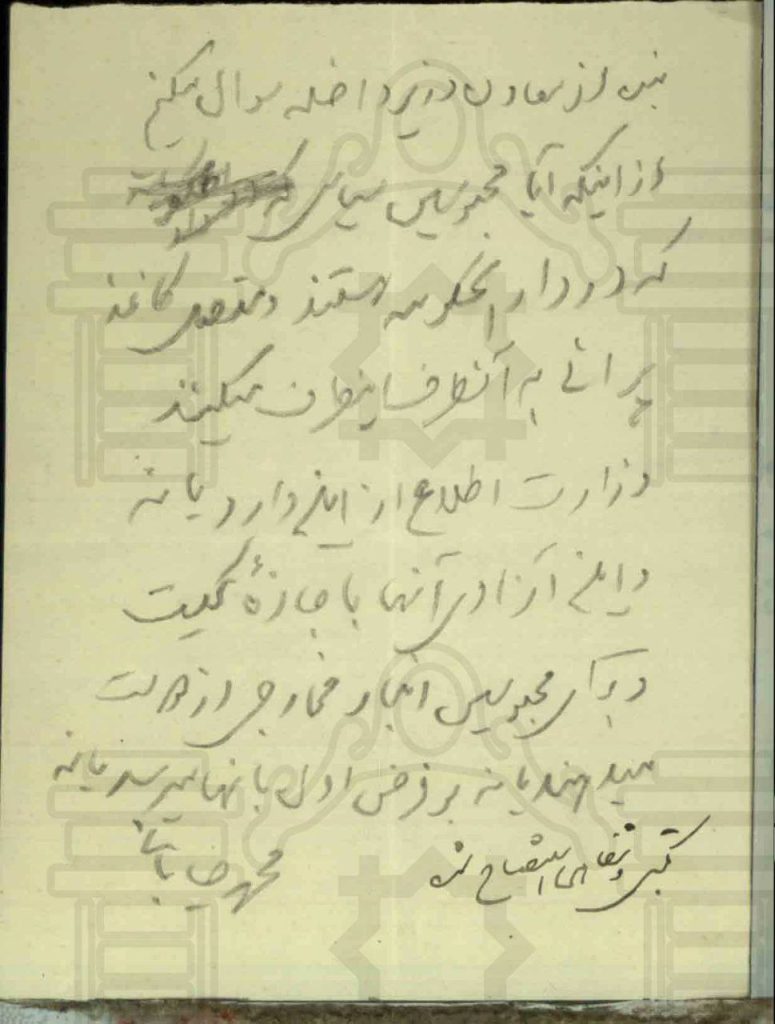 بنده از معاون وزیر داخله سوال میکنم
از اینکه آیا محبوسین سیاسی که
که در دار الحکومه هستند و متصدی کاغذ
پرانی به آنطرف اینطرف میکنند
وزارت اطلاع از اینها دارد یا نه
و اینکه آزادی آنها با اجازهٔ کیست
و برای محبوسین اینجا مخارجی از دولت
میدهند یا نه بر فرض اول بانها میرسد یا نه
کتبی و شفاهی استیضاح شد
محمد خیابانی